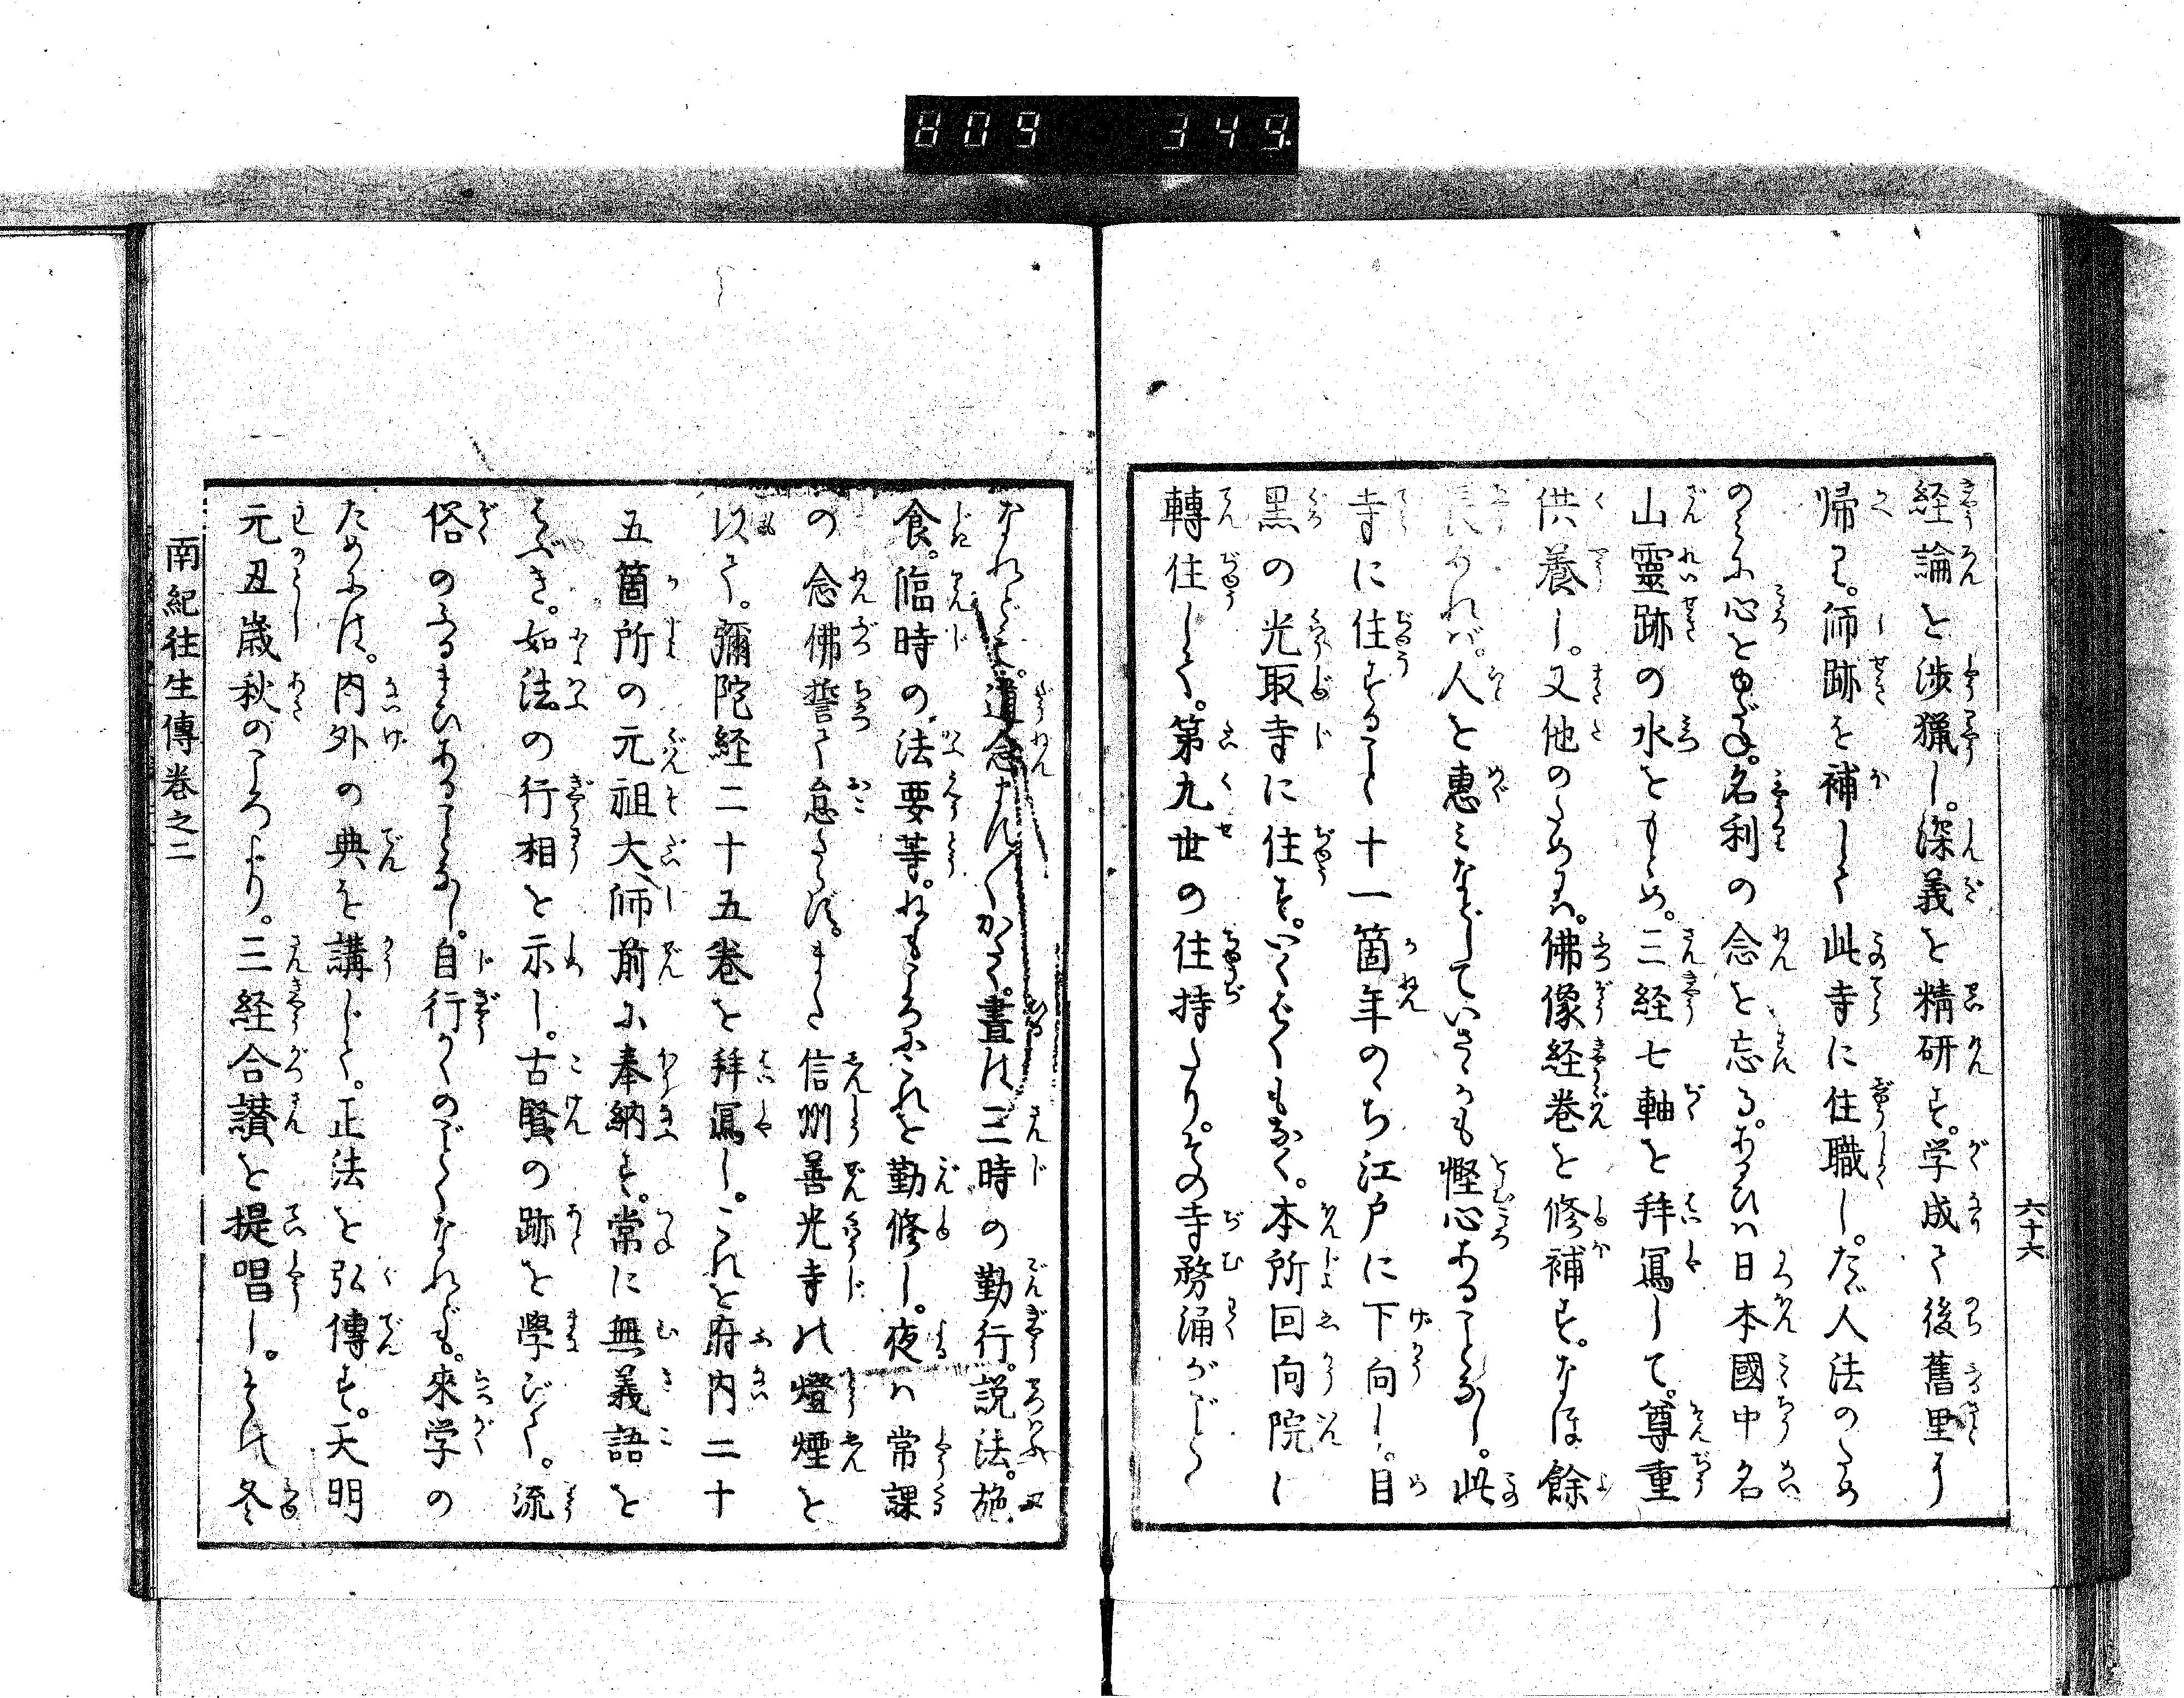 809 349
六十六
経論を渉猟し。深義を精研す。学成て後舊里に
帰り。師跡を補して此寺に住職し。たゞ人法のため
のミに心をゆだね。名利の念を忘る。あるひハ日本國中名
山靈跡の水をもとめ。三経七軸を拝寫して。尊重
供養し。又他のためにハ。佛像経巻を修補す。なほ餘
長あれバ。人を惠ミなどしていさゝかも慳心あることなし。此
寺に住すること十一箇年のゝち江戸に下向し。目
黒の光取寺に住す。いくほどもなく。本所回向院に
轉住して。第九世の住持たり。その寺務涌がごとく
なれども。道念さんかくて。晝は三時の勤行。説法。施
食。臨時の法要等。ねもころにこれを勤修し。夜ハ常課
の念佛誓て怠らず。また信州善光寺の燈煙を
以て。彌陀経二十五巻を拝寫し。これを府内二十
五箇所の元祖大師前に奉納す。常に無義語を
はぶき。如法の行相を示し。古賢の跡を學びて。流
俗のふるまひあることなし。自行かくのごとくなれども。來学の
ためには。内外の典を講じて。正法を弘傳す。天明
元丑歳秋のころより。三経合讃を提唱し。その冬
南紀往生傳巻之二